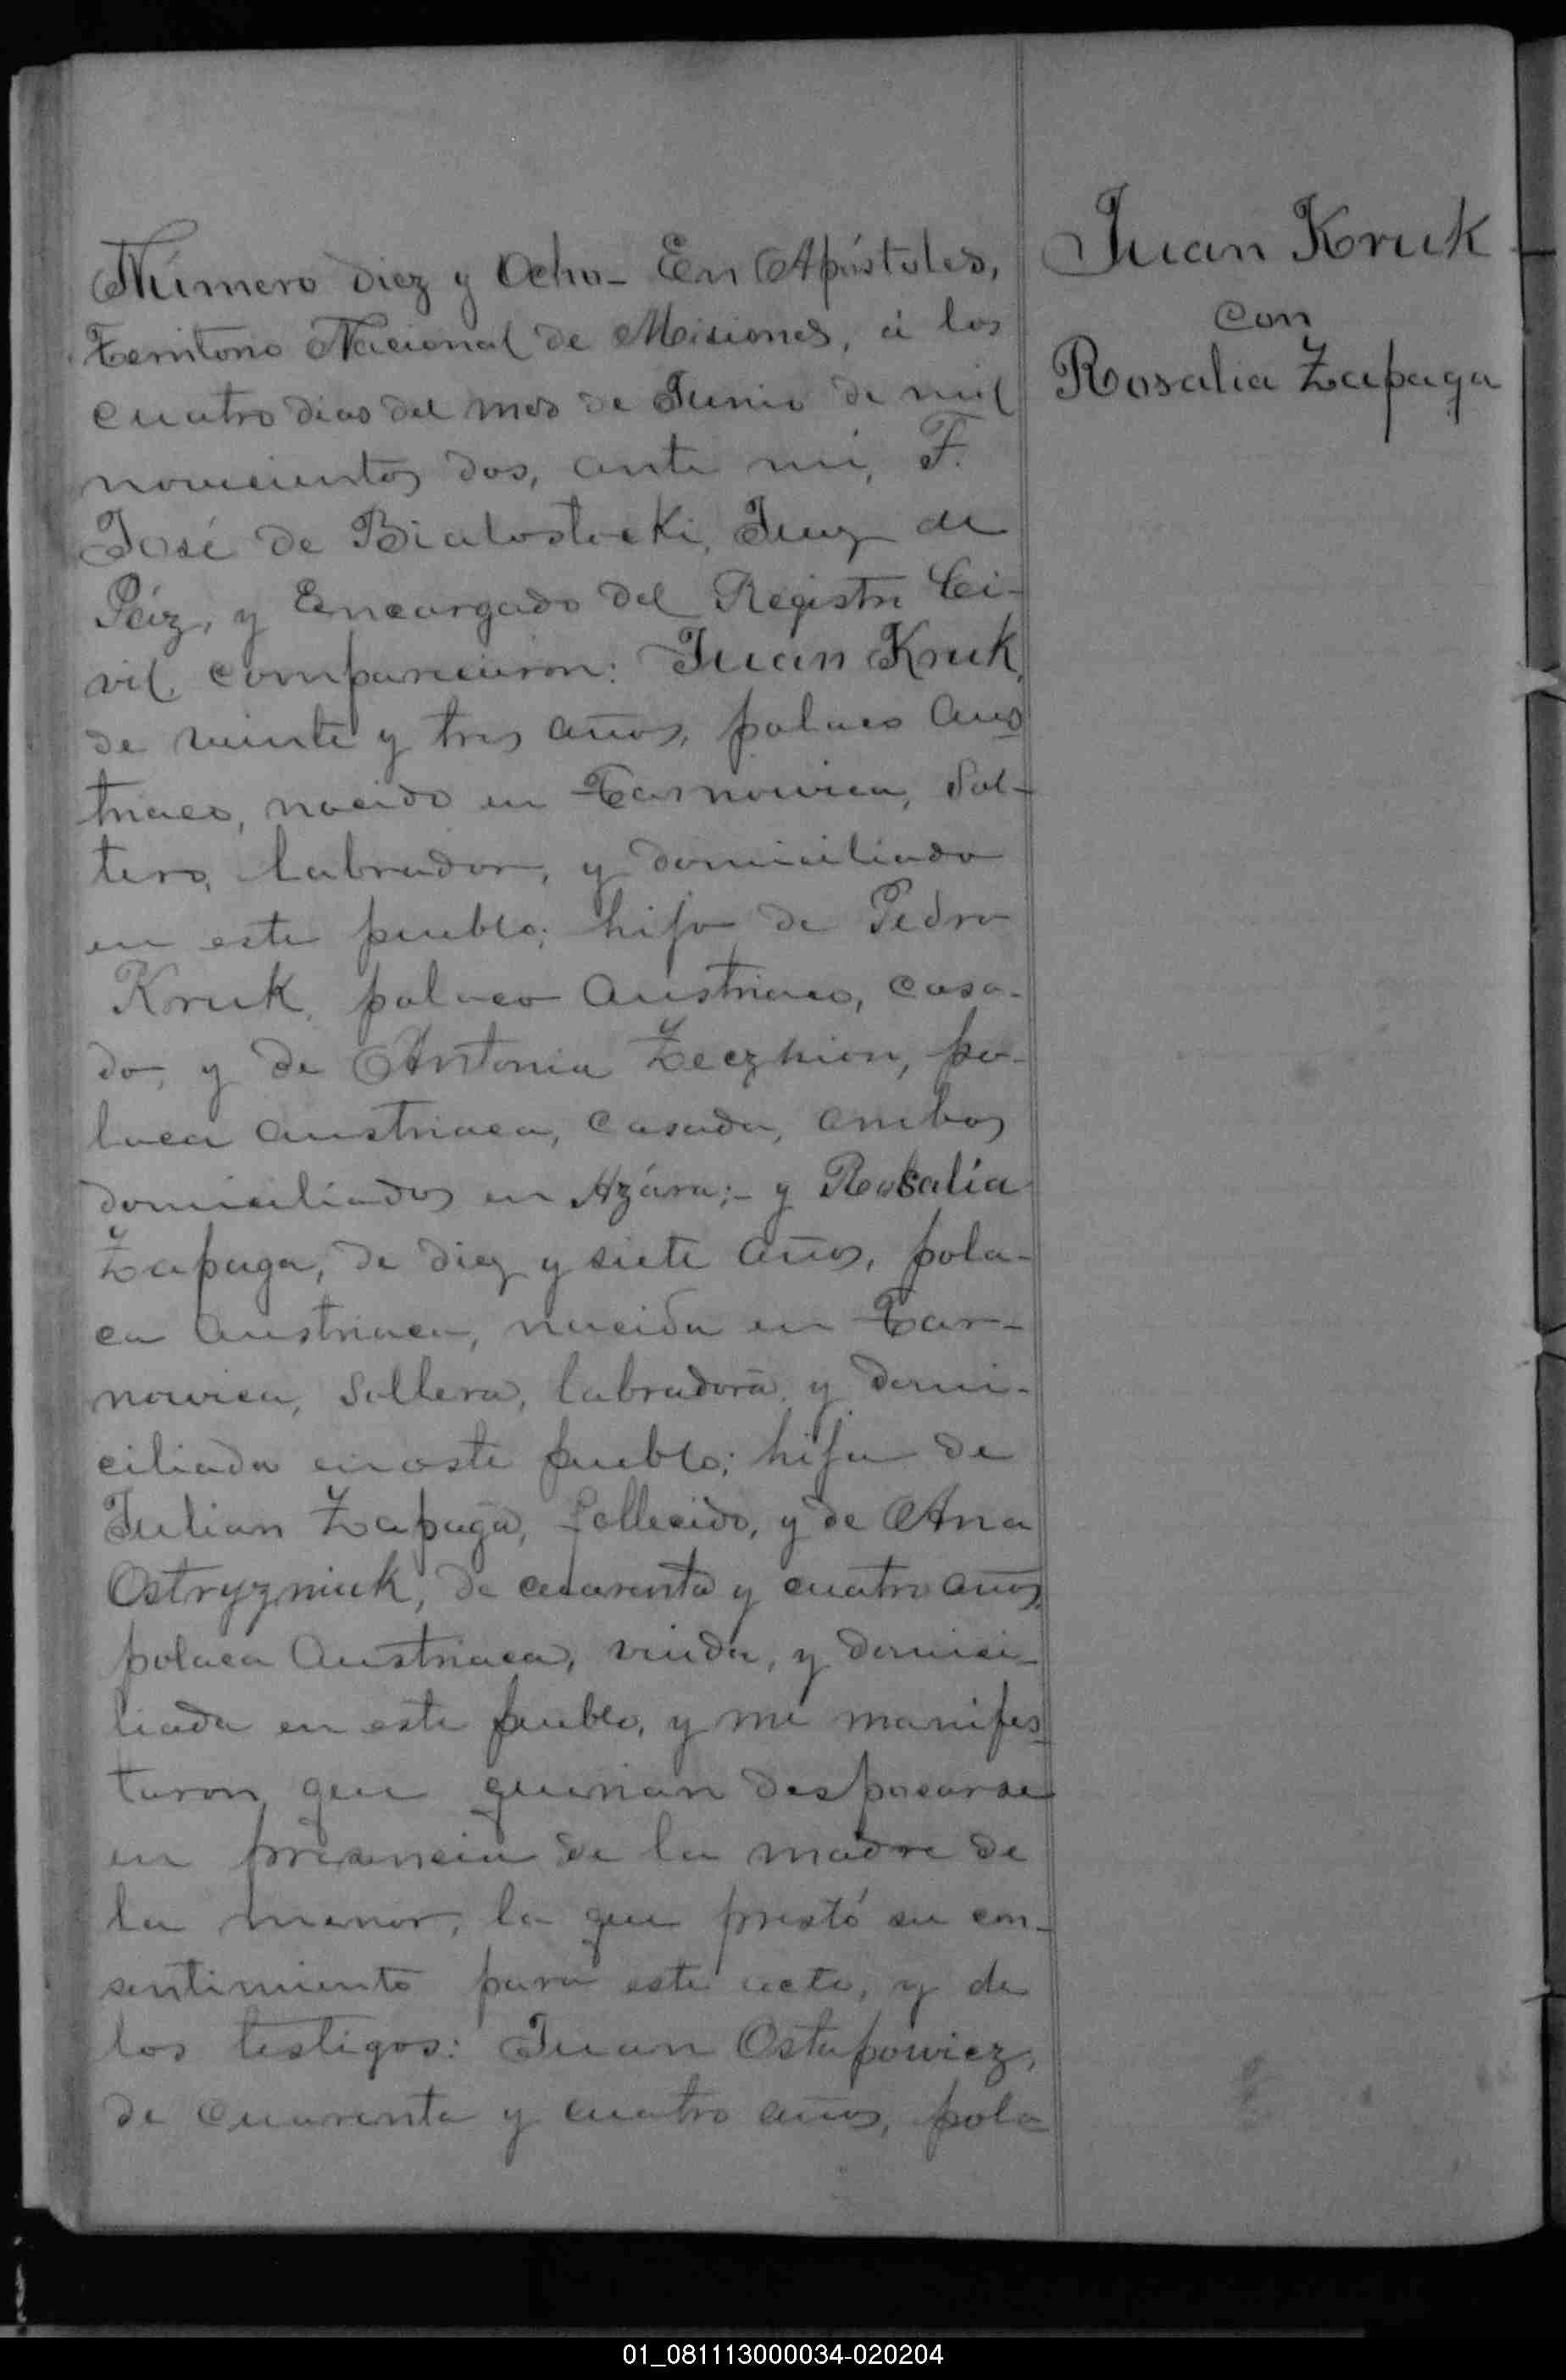 Número diez y Ocho_ En Apóstoles,
Territorio Nacional de Misiones, á los
cuatro dias del mes de Junio de mil
novecientos dos, ante mí, F.
José de Bialostocki, Juez de
Páz, y Encargado del Registro Ci-
vil, comparecieron: Juan Kruk,
de veinte y tres años, polaco Aus
triaco, nacido en Tarnowica, Sol-
tero, labrador, y domiciliado
en este pueblo; hijo de Pedro
Kruk, polaco Austriaco, casa-
do, y de Antonia Zeczkion, po-
laca austriaca, casada, ambos
domiciliados en Azára;- y Rosalía
Zapaga, de diez y siete años, pola-
ca Austriaca, nacida en Tar-
nowica, Soltera, labradora, y domi-
ciliada en este pueblo; hija de
Julian Zapaga, fallecido, y de Ana
Ostryzniuk, de cuarenta y cuatro años,
polaca Austriaca, viuda, y domici-
liada en este pueblo, y me manifes
taron que querian desposarse
en presencia de la madre de
la menor, la que prestó su con-
sentimiento para este acto, y de
los testigos: Juan Ostapowicz,
de cuarenta y cuatro años, pola
Juan Kruk
con
Rosalia Zapaga
01_081113000034-020204